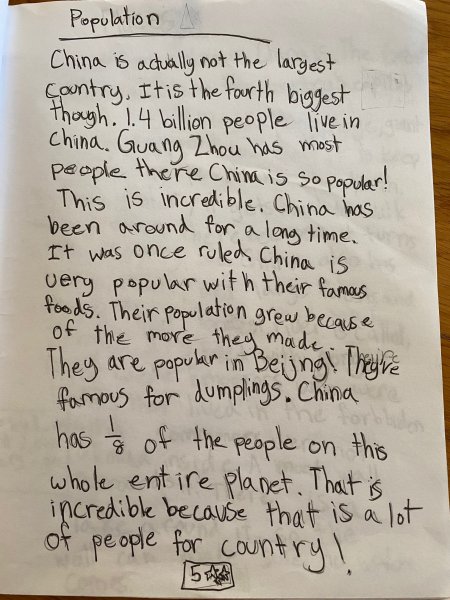 Population
China is actually not the largest
country. It is the fourth biggest
though. 1.4 billion people live in
China. Guang Zhou has most
people there China is so popular!
This is incredible. China has
been around for a long time.
It was once ruled. China is
very popular with their famous
foods. Their population grew because
of the more they made.
They are popular in Beijng! They're
famous for dumplings. China
has 1/8 of the people on this
whole entire planet. That is
incredible because that is a lot
of people for country!
5